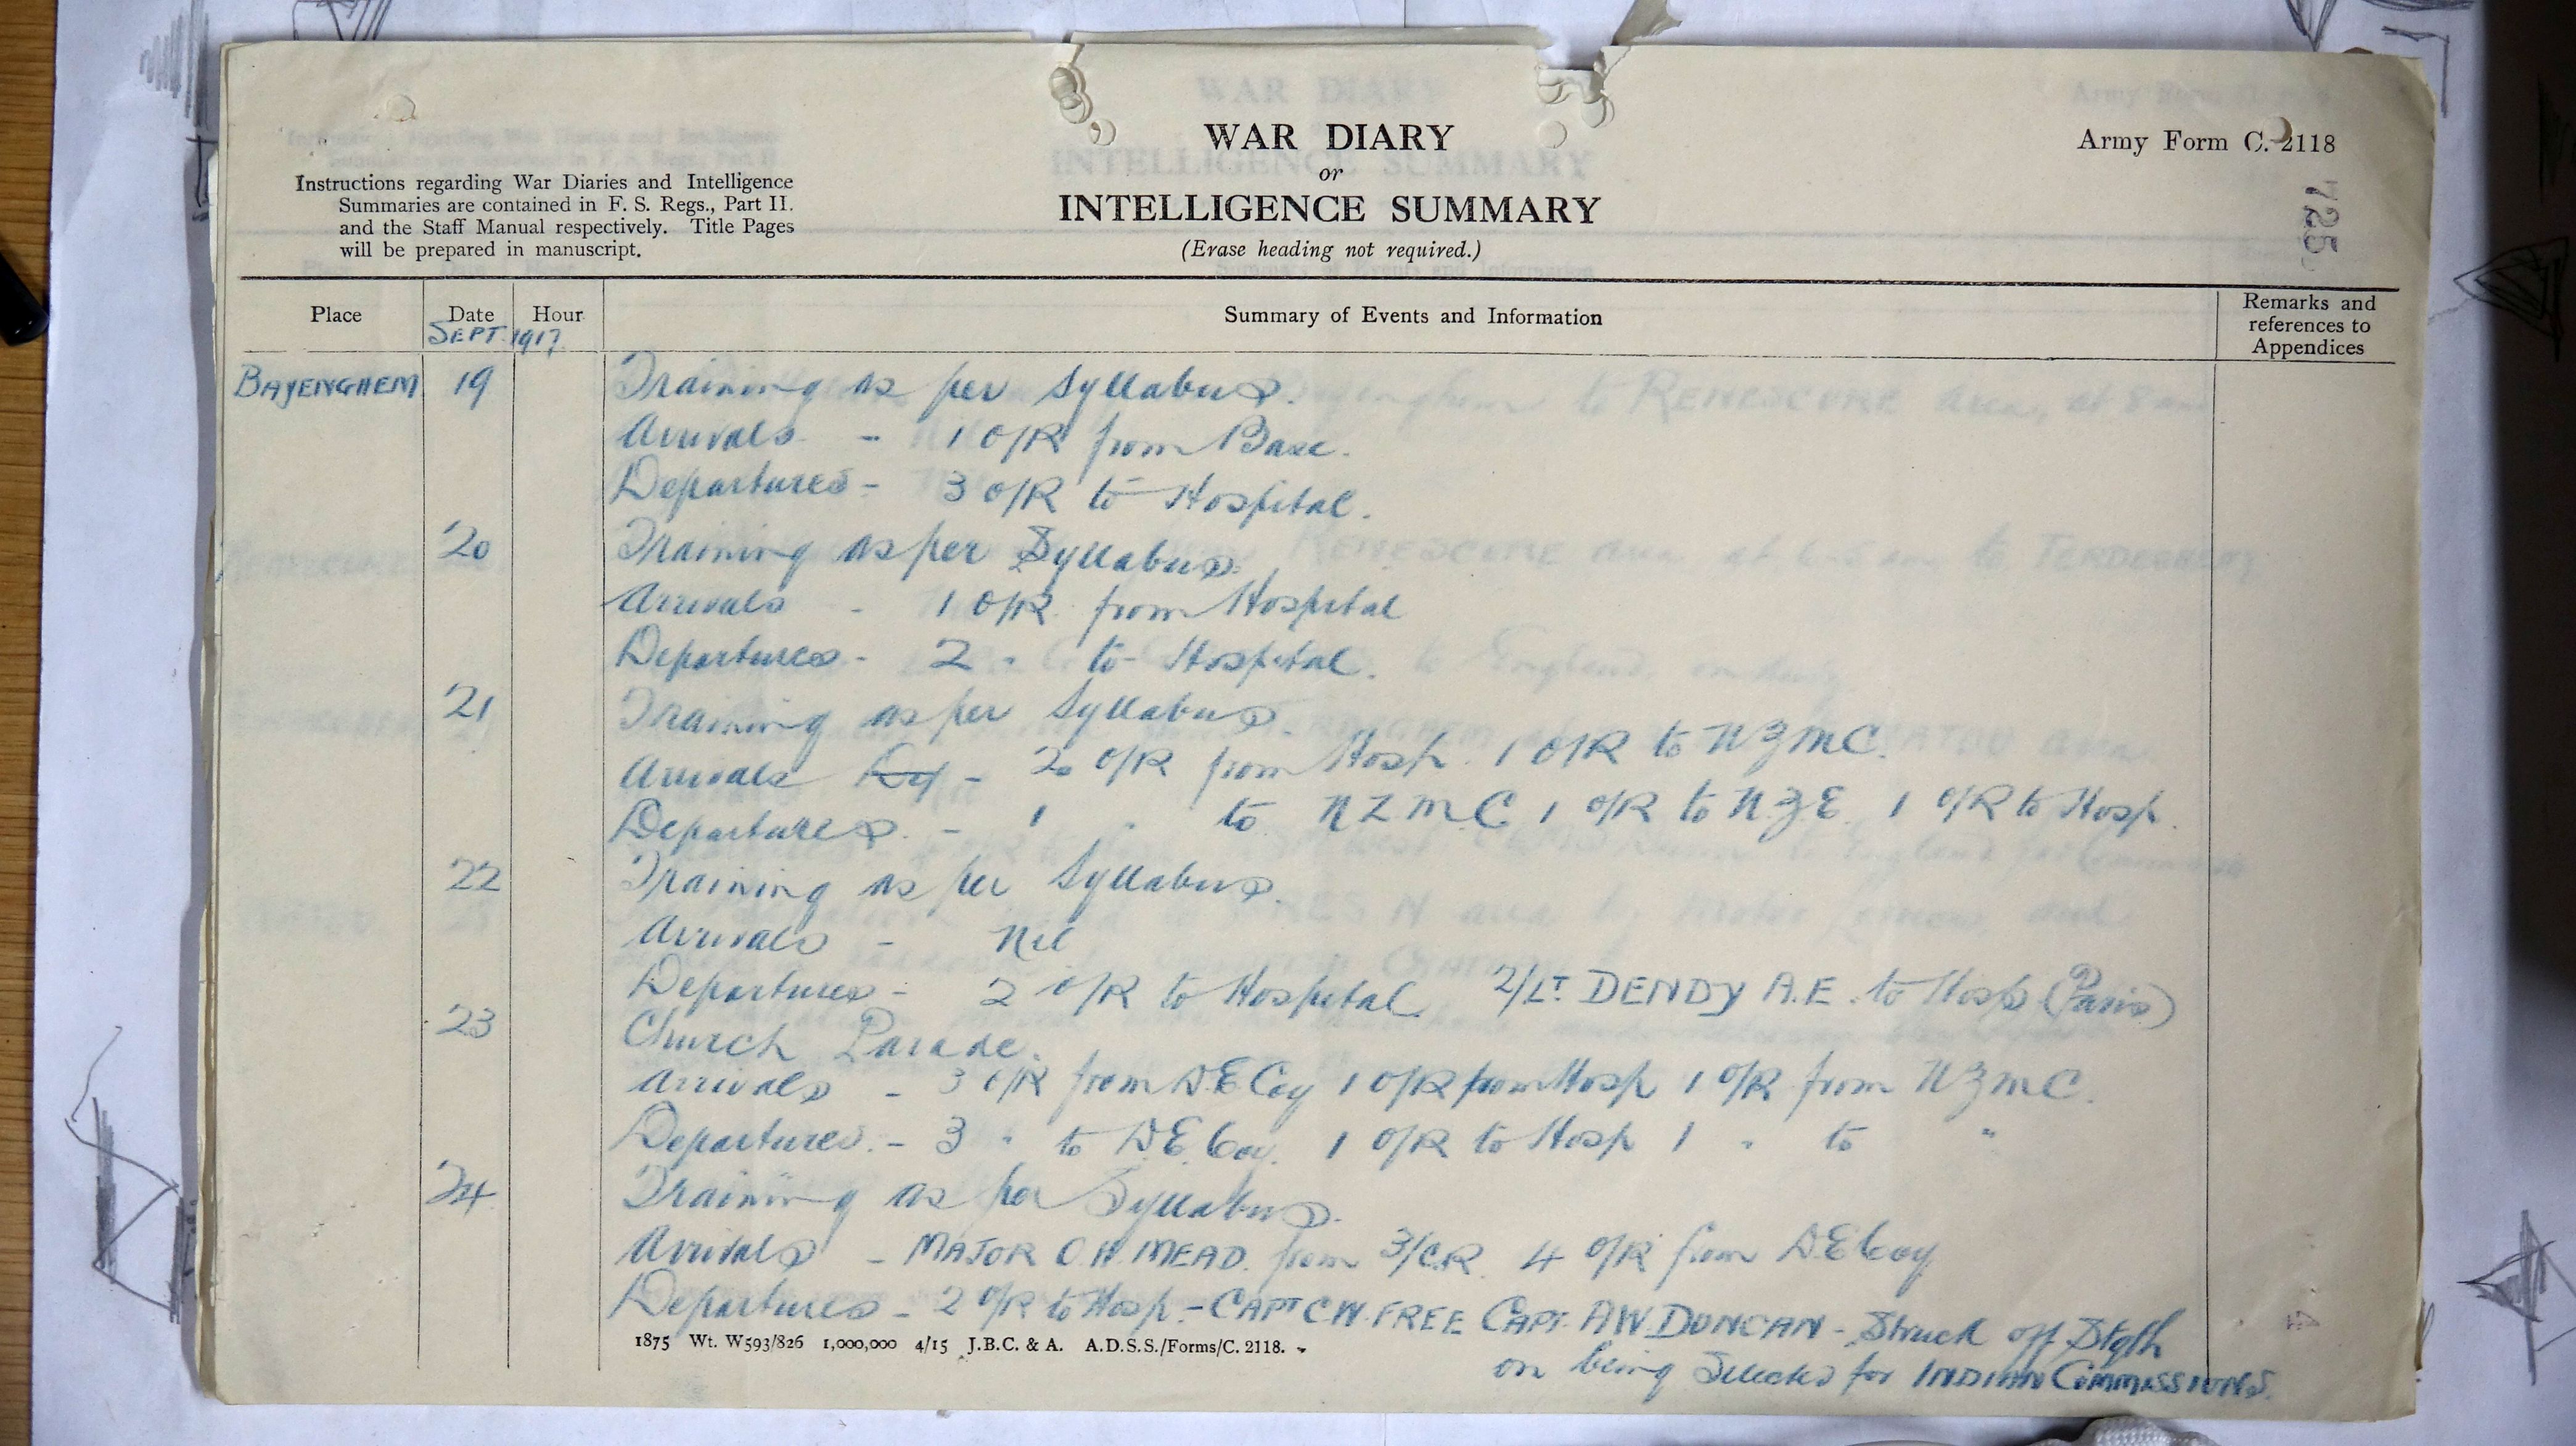 WAR DIARY
or
INTELLIGENCE SUMMARY
(Erase heading not required.)
Army Form C. 2118
725
Instructions regarding War Diaries and Intelligence
Summaries are contained in F. S. Regs., Part II.
and the Staff Manual respectively. Title Pages
will be prepared in manuscript.
Place Date Hour Summary of Events and Information Remarks and references to Appendices
SEPT. 1917
BAYENGHEM 19 Training as per Syllabus.
Arrivals - 1 O/R from Base.
Departures - 3 O/R to Hospital.
20 Training as per Syllabus.
Arrivals - 1 O/R from Hospital
Departures - 2 " to Hospital.
21 Training as per Syllabus.
Arrivals - 2 O/R from Hosp. 1 O/R to NZMC.
Departures. - 1 " to NZMC 1 O/R to N.Z.E. 1 O/R to Hosp.
22 Training as per Syllabus.
Arrivals - Nil
Departures - 2 O/R to Hospital 2/LT. DENDY A.E. to Hosp (Paris)
23 Church Parade.
Arrivals - 3 O/R from D.E Coy 1 O/R from Hosp 1 O/R from NZMC.
Departures. - 3 " to D.E. Coy. 1 O/R to Hosp 1 " to "
24 Training as per Syllabus.
Arrivals - MAJOR O.H. MEAD. from 3/C.R. 4 O/R from D.E Coy
Departures - 2 O/R to Hosp. - CAPT C.W. FREE CAPT. A.W. DUNCAN - Struck off Stgth
on being Selected for INDIAN COMMISSIONS.
1875 Wt. W593/826 1,000,000 4/15 J.B.C. & A. A.D.S.S./Forms/C. 2118.